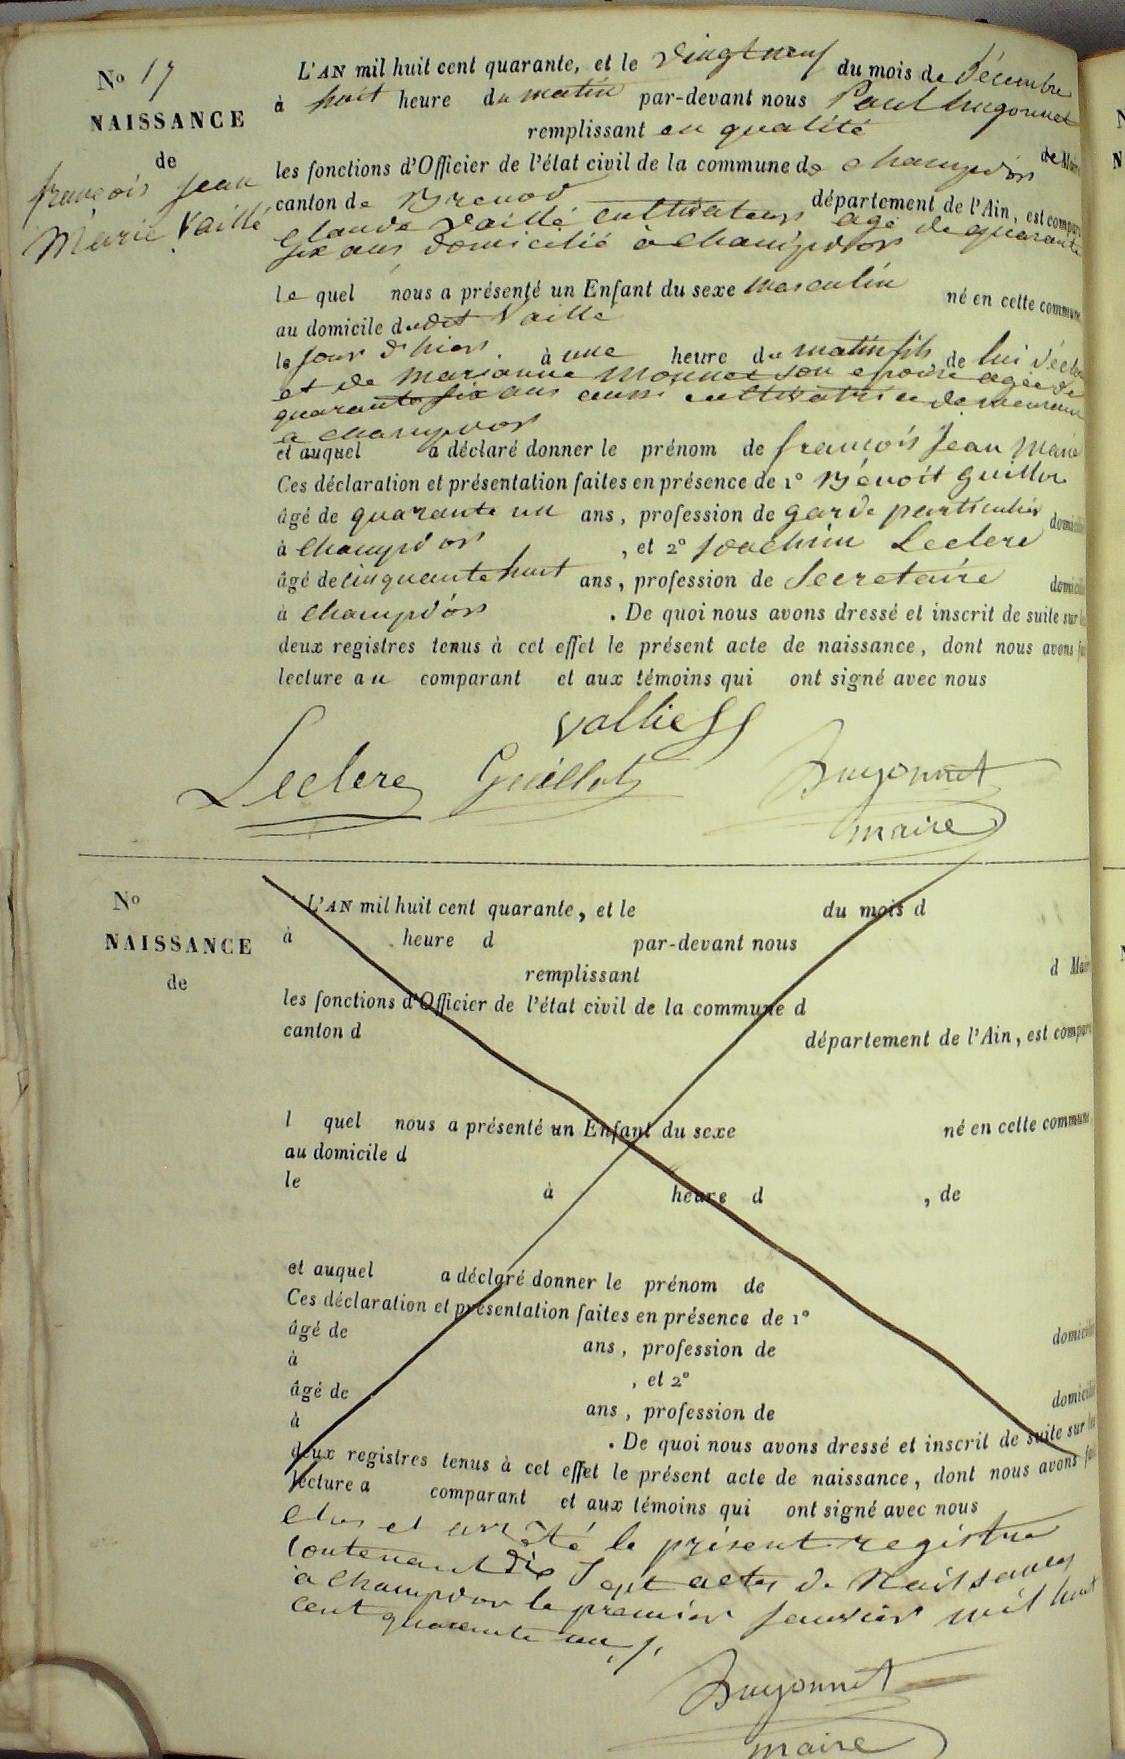 No 17
NAISSANCE
de
françois Jean
Marie Vaillé
L'AN mil huit cent quarante, et le vingt neuf du mois de Décembre
à huit heure du matin par-devant nous Paul hugonnet
remplissant en qualité de Mair
les fonctions d'Officier de l'état civil de la commune de champdor
canton de Brenod département de l'Ain, est compar
Claude Vaillé cultivateur agé de quarante
six ans domicilié à champdor
le quel nous a présenté un Enfant du sexe masculin né en cette commune
au domicile dudit Vaillé
le jour d'hier à une heure du matin fils de lui déclar
et de marianne monnet son epouse agée de
quarante six ans aussi cultivatrice demeurant
a champdor
et auquel a déclaré donner le prénom de françois Jean Marie
Ces déclaration et présentation faites en présence de 1° Bénoit Guillot
âgé de quarante un ans, profession de garde particulier domicilié
à Champdor, et 2° Joachim Leclerc
âgé de cinquante huit ans, profession de Secretaire domicil
à Champdor. De quoi nous avons dressé et inscrit de suite sur les
deux registres tenus à cet effet le présent acte de naissance, dont nous avons fai
lecture au comparant et aux témoins qui ont signé avec nous
Leclerc Guillot hugonnet
maire
No
NAISSANCE
de
L'AN mil huit cent quarante, et le du mois d
à heure d par-devant nous
remplissant d Mair
les fonctions d'Officier de l'état civil de la commune d
canton d département de l'Ain, est compar
l quel nous a présenté un Enfant du sexe né en cette commune
au domicile d
le à heure d , de
et auquel a déclaré donner le prénom de
Ces déclaration et présentation faites en présence de 1°
âgé de ans, profession de domicilié
à , et 2°
âgé de ans, profession de domicilié
à . De quoi nous avons dressé et inscrit de suite sur les
deux registres tenus à cet effet le présent acte de naissance, dont nous avons fai
lecture a comparant et aux témoins qui ont signé avec nous
Clos et arrêté le présent registre
contenant dix Sept actes de Naissances
à champdor le premier Janvier mil huit
cent quarante un
hugonnet
maire